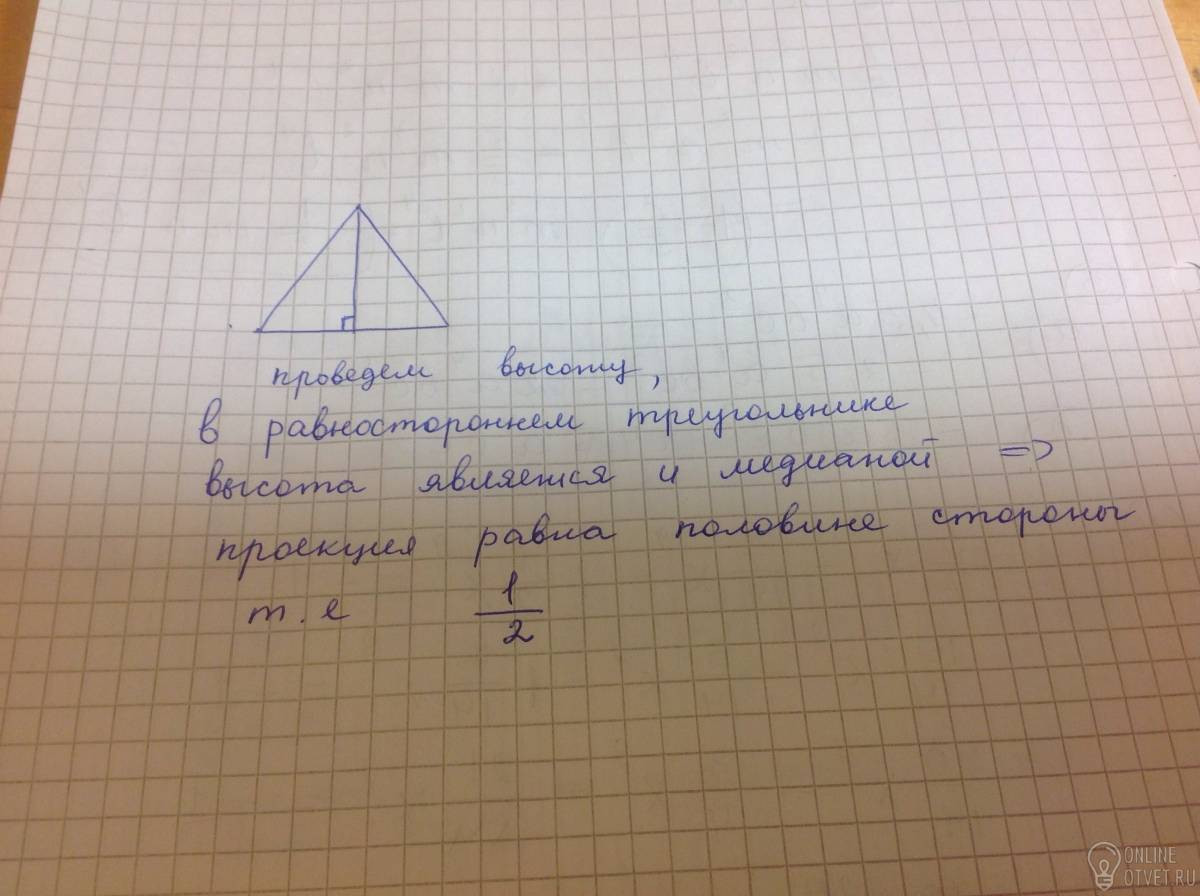 проведем высоту,
в равностороннем треугольнике
высота является и медианой =>
проекция равна половине стороны
т.е 1/2
ONLINE
OTVET.RU